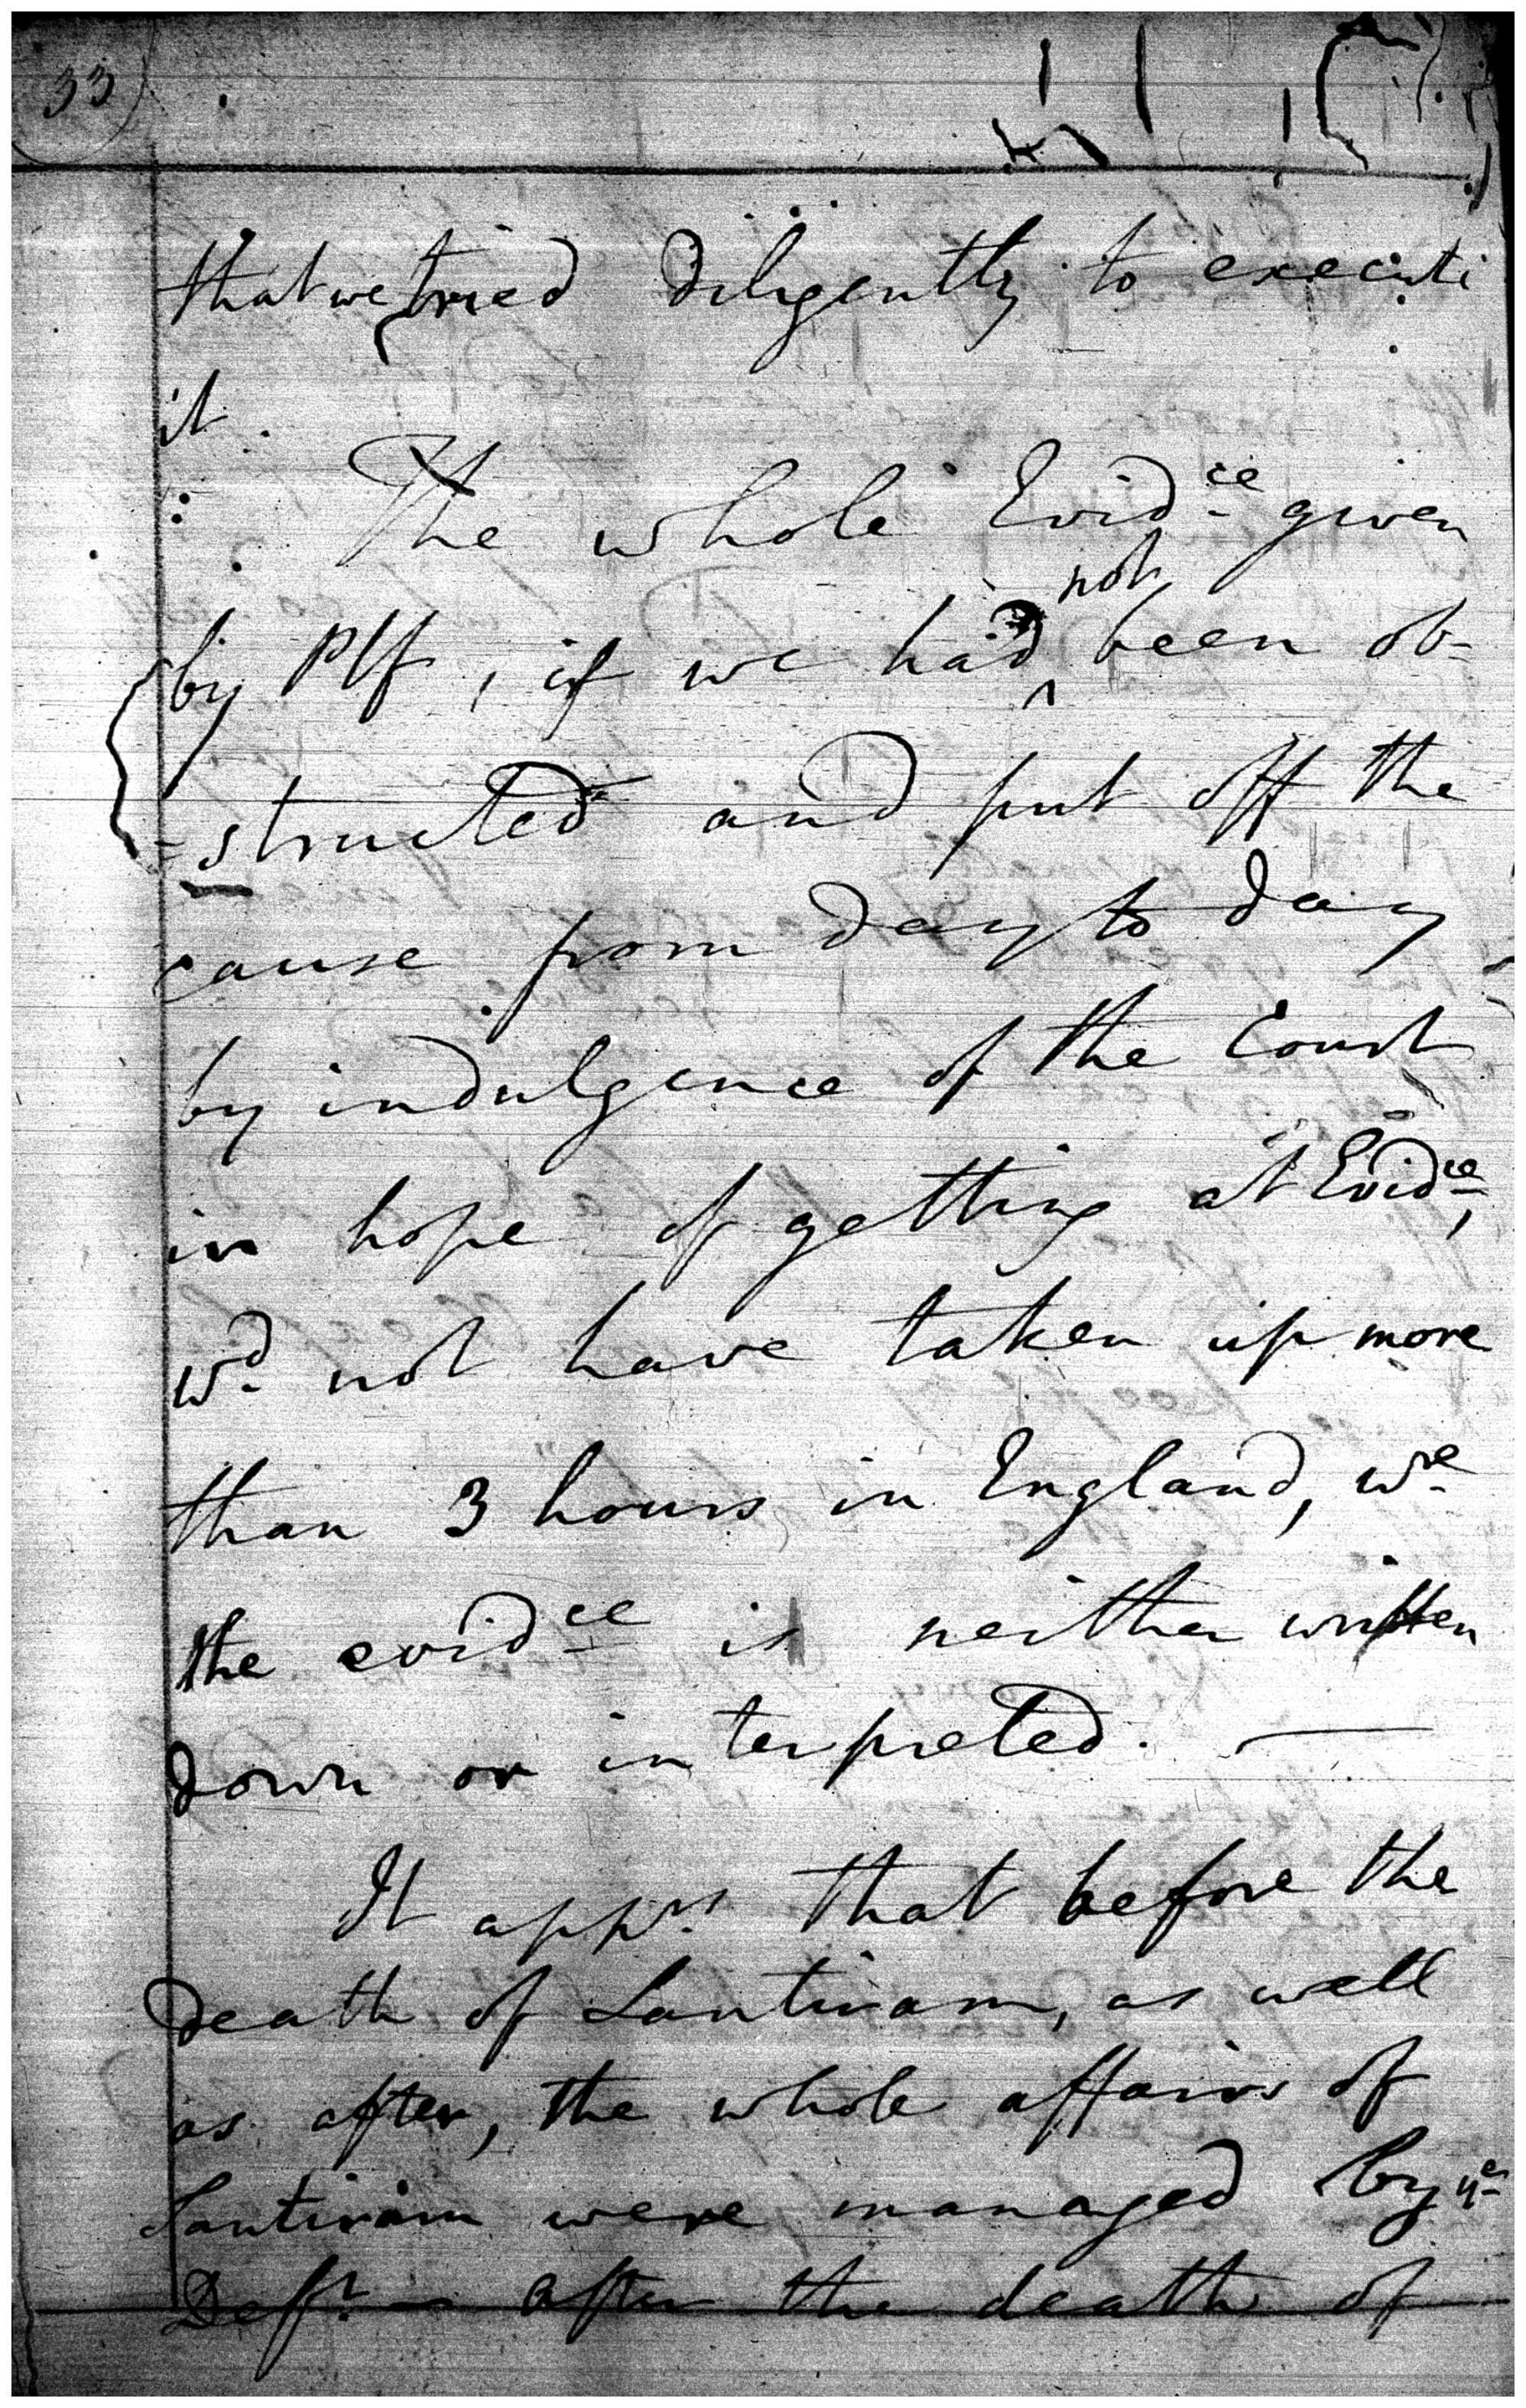 33
that we tried diligently to execute
it.
The whole Evidce given
by Plf, if we had not been ob-
-structed and put off the
cause from day to day
by indulgence of the Court
in hope of getting at Evidce,
wd not have taken up more
than 3 hours in England, wre
the evidce is neither written
down or interpreted. —
It apprs that before the
death of Santiram, as well
as after, the whole affairs of
Santiram were managed by ye
Deft - after the death of